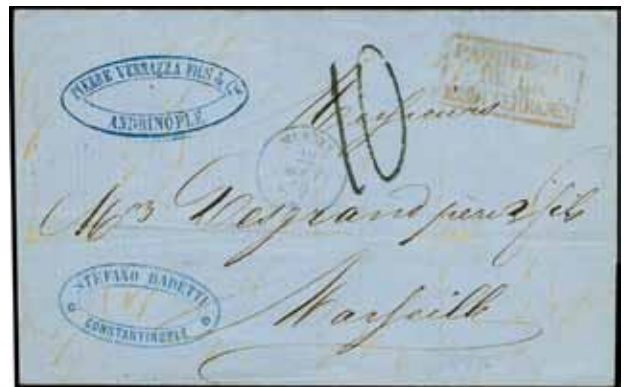 PIERRE VERNAZZA FILS & Cie
ANDRINOPLE
PAQUEBOTS
DE LA
MÉDITERRANÉE
10
Messieurs
Mrs Desgrand père & fils
Marseille
STEFANO BADETTI
CONSTANTINOPLE